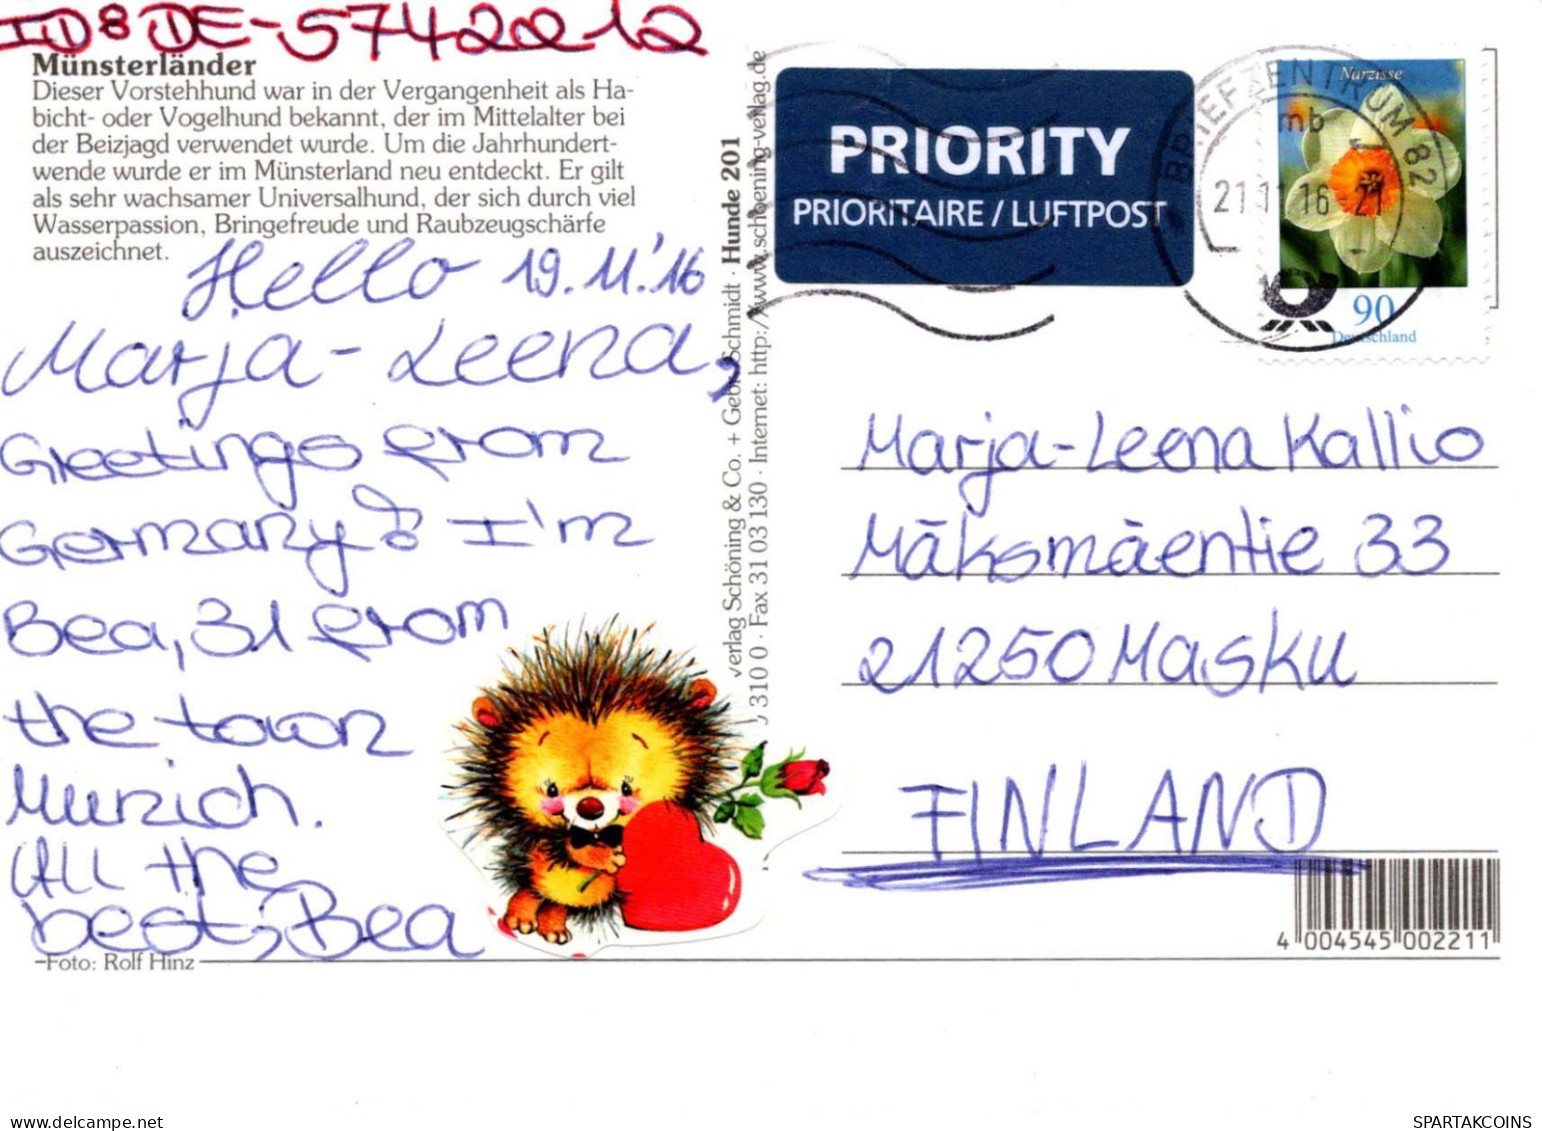 ID: DE-5742212
Münsterländer
Dieser Vorstehhund war in der Vergangenheit als Ha-
bicht- oder Vogelhund bekannt, der im Mittelalter bei
der Beizjagd verwendet wurde. Um die Jahrhundert-
wende wurde er im Münsterland neu entdeckt. Er gilt
als sehr wachsamer Universalhund, der sich durch viel
Wasserpassion, Bringefreude und Raubzeugschärfe
auszeichnet.
Hello 19.11.'16
Marja-Leena,
Greetings from
Germany! I'm
Bea, 31 from
the town
Munich.
All the
best, Bea
Foto: Rolf Hinz
verlag Schöning & Co. + Gebr. Schmidt · Hunde 201
310 0 · Fax 31 03 130 · Internet: http://www.schoening-verlag.de
PRIORITY
PRIORITAIRE / LUFTPOST
BRIEFZENTRUM 82
mb
21.11.16-21
Narzisse
90
Deutschland
Marja-Leena Kallio
Mäksmäentie 33
21250 Masku
FINLAND
4 004545 002211
SPARTAKCOINS